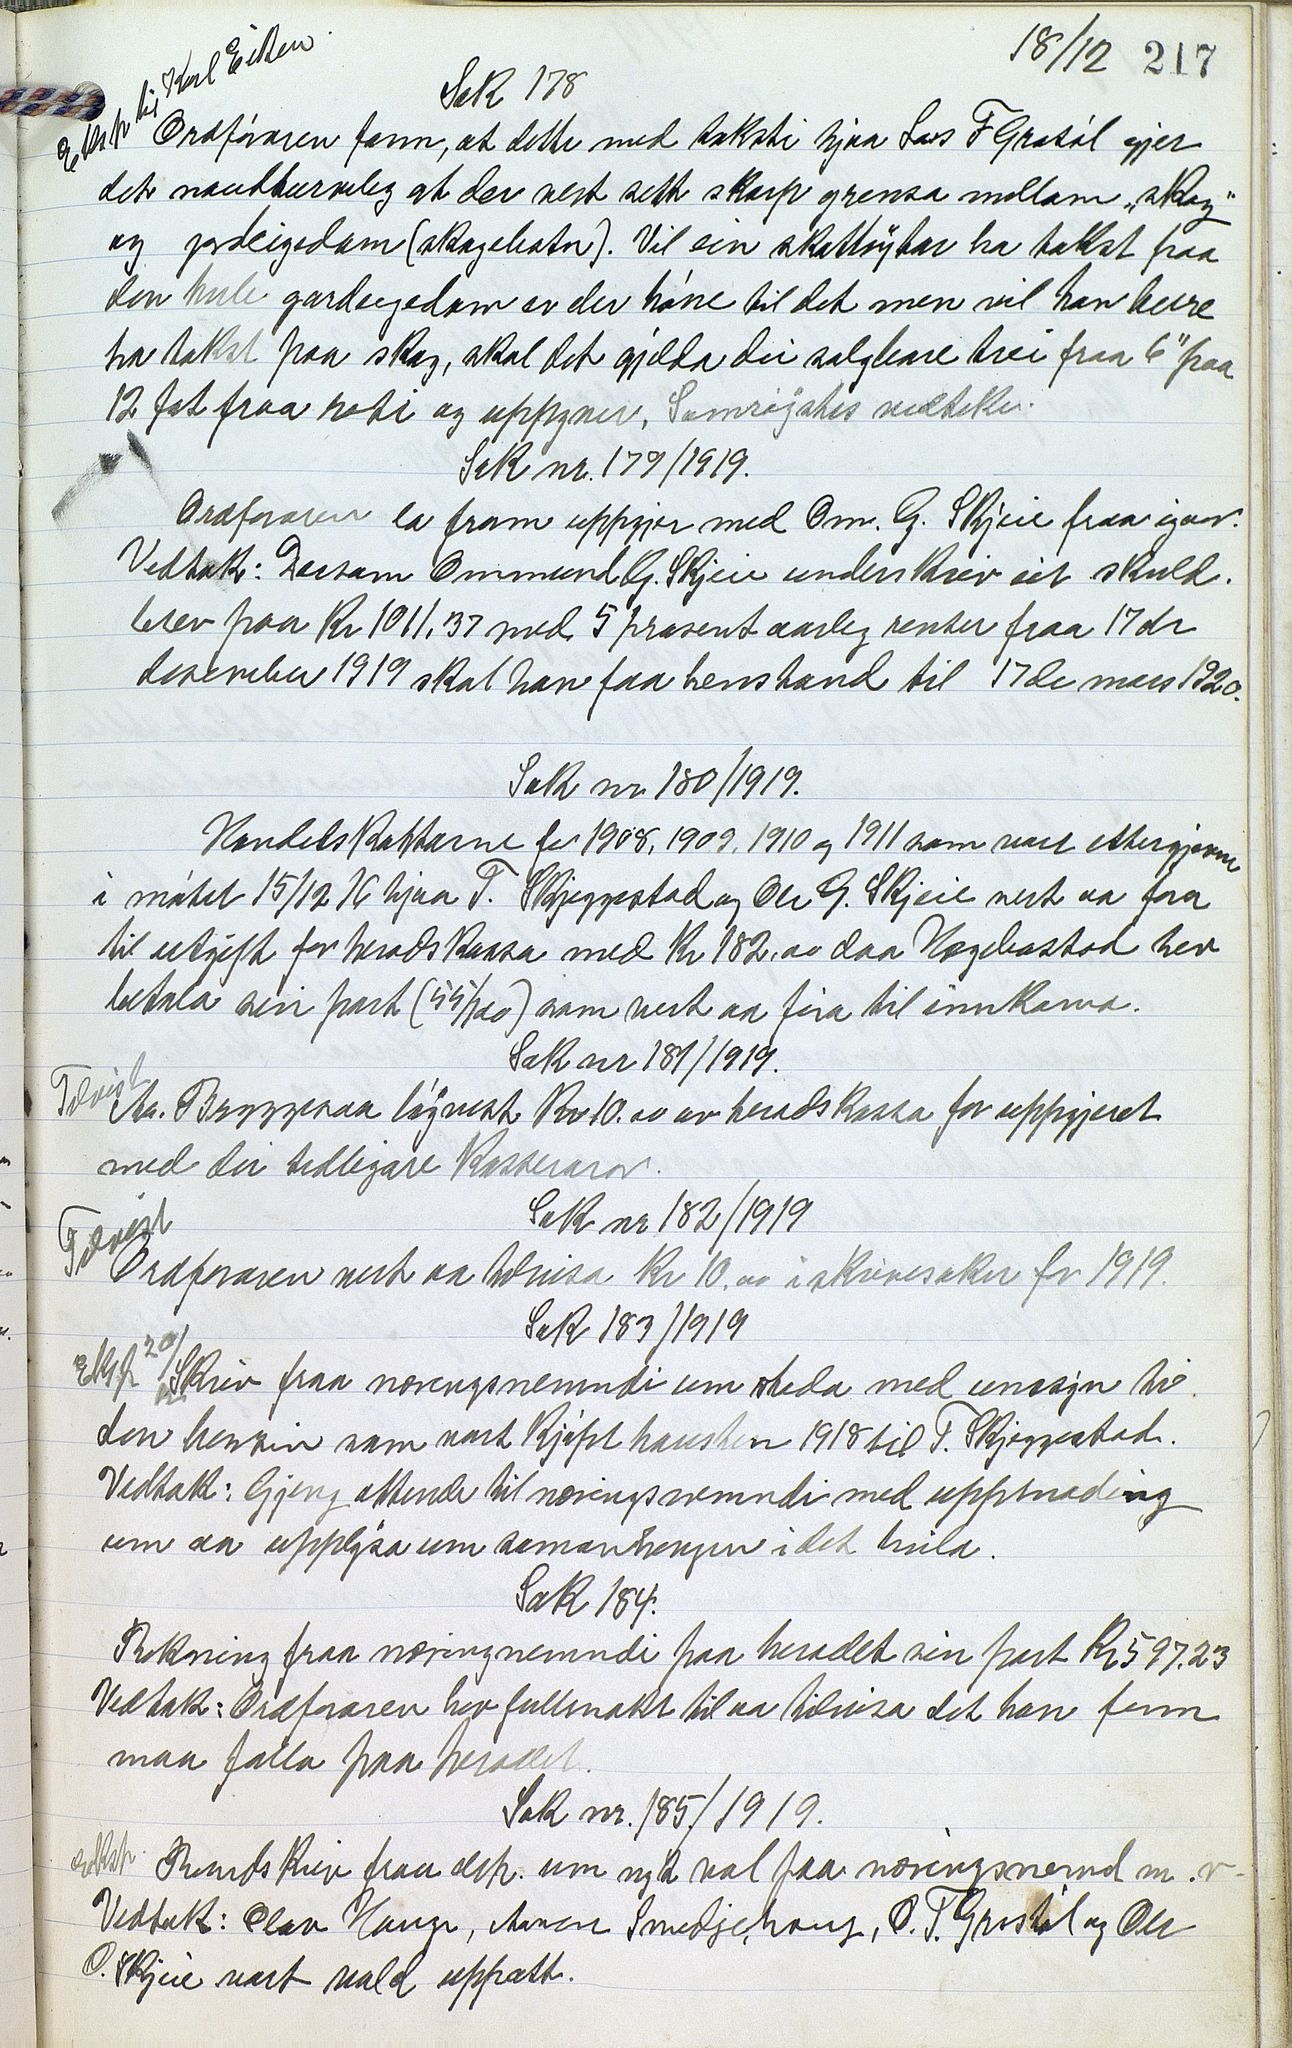 18/12 217
Eksp til Karl Eiken.
Sak 178
Ordføraren fann, at dette med taksti hjaa Lars F Grøsöl gjer
det naudturvelig at der vert sett skarp grensa millom "skog"
og jordeigedom (skogebotn). Vil ein skattøytar ha takst paa
den heile gardeigedom er der høve til det men vil han berre
ha takst paa skog, skal det gjelda dei salgbare trei fraa 6" paa
12 fot fraa roti og uppyver. Samrøystes vedteke.
Sak nr. 179/1919.
Ordføraren la fram uppgjer med Om. G. Skjeie fraa igaar.
Vedtak: Dersom Ommund G. Skjeie underskriv eit skuld.
brev paa Kr 1011,37 med 5 prosent aarleg renter fraa 17de
desember 1919 skal han faa henstand til 17de mars 1920.
Sak nr 180/1919.
Handelskattarne for 1908, 1909, 1910 og 1911 som vart ettergjevne
i møtet 15/12 16 hjaa T. Skjeggestad og Ole G. Skjeie vert aa føra
til utgift for heradskassa med Kr 182.00 daa Hægebostad hev
betala sin part (55/100) som vert aa føra til innkoma.
Sak nr 181/1919.
Tilvist
Aa. Bryggesaa løyvest Kr 10.00 av heradskassa for uppgjeret
med dei tidlegare Kasserarar.
Sak nr 182/1919
Tilvist
Ordføraren vert aa tilvisa Kr 10.00 i skrivesaker for 1919.
Sak 183/1919
Eksp 20/12
Skriv fraa næringsnemndi um skada med umsyn til
den hesten som vart kjøpt hausten 1918 til T. Skjeggestad.
Vedtak: Gjeng attende til næringsnemndi med uppmoding
um aa upplysa um samanhengen i det heila.
Sak 184.
Rekning fraa næringsnemndi paa heradet sin part Kr 597.23
Vedtak: Ordføraren hev fullmakt til aa tilvisa det han finn
maa falla paa heradet.
Sak nr. 185/1919.
eksp.
Rundskriv fraa dep. um nye val paa næringsnemnd m. v.
Vedtak: Olav Hauge, Anen Smedjehaug, O. T. Grøstöl og Ole
O. Skjeie vart vald uppatt.